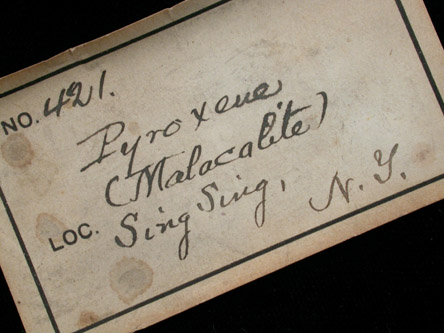 NO. 421.
Pyroxene
(Malacalite)
LOC. Sing Sing, N.Y.